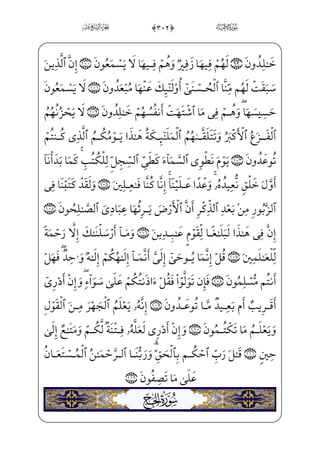 سُورَةُ الأَنبِيَاءِ ﴿٣٠٢﴾ الجُزْءُ السَّابِعَ عَشَرَ
خَٰلِدُونَ ٩٩ لَهُمْ فِيهَا زَفِيرٌ وَهُمْ فِيهَا لَا يَسْمَعُونَ ١٠٠ إِنَّ ٱلَّذِينَ
سَبَقَتْ لَهُم مِّنَّا ٱلْحُسْنَىٰٓ أُو۟لَٰٓئِكَ عَنْهَا مُبْعَدُونَ ١٠١ لَا يَسْمَعُونَ
حَسِيسَهَا ۖ وَهُمْ فِى مَا ٱشْتَهَتْ أَنفُسُهُمْ خَٰلِدُونَ ١٠٢ لَا يَحْزُنُهُمُ
ٱلْفَزَعُ ٱلْأَكْبَرُ وَتَتَلَقَّىٰهُمُ ٱلْمَلَٰٓئِكَةُ هَٰذَا يَوْمُكُمُ ٱلَّذِى كُنتُمْ
تُوعَدُونَ ١٠٣ يَوْمَ نَطْوِى ٱلسَّمَآءَ كَطَىِّ ٱلسِّجِلِّ لِلْكُتُبِ ۚ كَمَا بَدَأْنَآ
أَوَّلَ خَلْقٍ نُّعِيدُهُۥ ۚ وَعْدًا عَلَيْنَآ ۚ إِنَّا كُنَّا فَٰعِلِينَ ١٠٤ وَلَقَدْ كَتَبْنَا فِى
ٱلزَّبُورِ مِنۢ بَعْدِ ٱلذِّكْرِ أَنَّ ٱلْأَرْضَ يَرِثُهَا عِبَادِىَ ٱلصَّٰلِحُونَ ١٠٥
إِنَّ فِى هَٰذَا لَبَلَٰغًا لِّقَوْمٍ عَٰبِدِينَ ١٠٦ وَمَآ أَرْسَلْنَٰكَ إِلَّا رَحْمَةً
لِّلْعَٰلَمِينَ ١٠٧ قُلْ إِنَّمَا يُوحَىٰٓ إِلَىَّ أَنَّمَآ إِلَٰهُكُمْ إِلَٰهٌ وَٰحِدٌ ۖ فَهَلْ
أَنتُم مُّسْلِمُونَ ١٠٨ فَإِن تَوَلَّوْا۟ فَقُلْ ءَاذَنتُكُمْ عَلَىٰ سَوَآءٍ ۖ وَإِنْ أَدْرِىٓ
أَقَرِيبٌ أَم بَعِيدٌ مَّا تُوعَدُونَ ١٠٩ إِنَّهُۥ يَعْلَمُ ٱلْجَهْرَ مِنَ ٱلْقَوْلِ
وَيَعْلَمُ مَا تَكْتُمُونَ ١١٠ وَإِنْ أَدْرِى لَعَلَّهُۥ فِتْنَةٌ لَّكُمْ وَمَتَٰعٌ إِلَىٰ
حِينٍ ١١١ قَٰلَ رَبِّ ٱحْكُم بِٱلْحَقِّ ۗ وَرَبُّنَا ٱلرَّحْمَٰنُ ٱلْمُسْتَعَانُ
عَلَىٰ مَا تَصِفُونَ ١١٢
سُورَةُ الحَجِّ